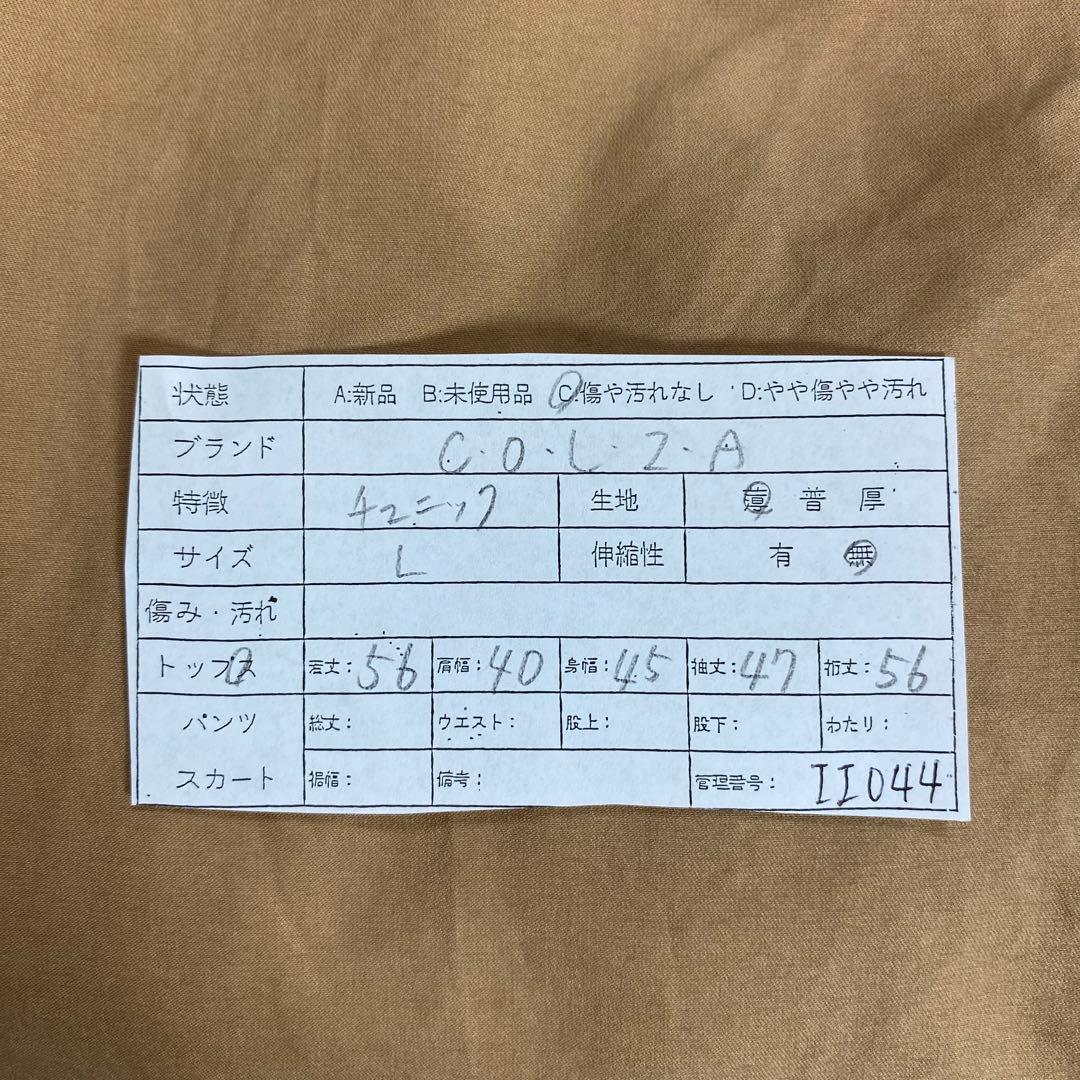 状態 A:新品 B:未使用品 C:傷や汚れなし D:やや傷やや汚れ
ブランド C・O・L・Z・A
特徴 チュニック 生地 薄 普 厚
サイズ L 伸縮性 有 無
傷み・汚れ
トップス 着丈:56 肩幅:40 身幅:45 袖丈:47 裄丈:56
パンツ 総丈: ウエスト: 股上: 股下: わたり:
スカート 裾幅: 備考: 管理番号: II044